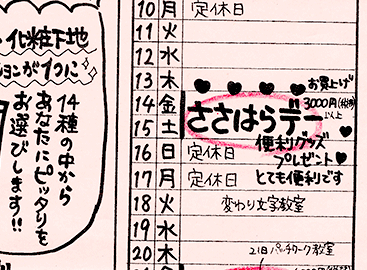 化粧下地
ションが1つに
14種の中から
あなたにピッタリを
お選びします!!
10 月 定休日
11 火
12 水
13 木
14 金
15 土
ささはらデー
お買上げ
3000円(税抜)
以上
便利グッズ
プレゼント♥
とても便利です
16 日 定休日
17 月 定休日
18 火 変わり文字教室
19 水
20 木
21日 パッチワーク教室